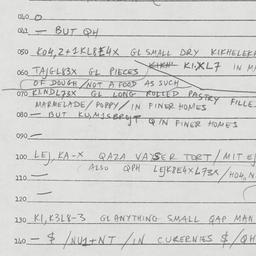 040 O
041 — BUT QH
050 KO4,2+1KL8E4X GL SMALL DRY KIKHELEKH
KI,XL7 IN MA
060 TAJGL83X GL PIECES
OF DOUGH/NOT A FOOD AS SUCH
070 KLNDL73X GL LONG ROLLED PASTRY FILLE
MARMELADE/POPPY/IN FINER HOMES
080 — BUT KU,MJSBRJT Q IN FINER HOMES
090 —
100 LEJ,KA-X QAZA VASER TORT/MIT EJ
ALSO QPH LEJKPE4XL73X/HO4,N
110 —
120 —
130 KI,K3L8-3 GL ANYTHING SMALL QAP MAN
140 — $/NU1+NT/IN CUKERNIES $/QH